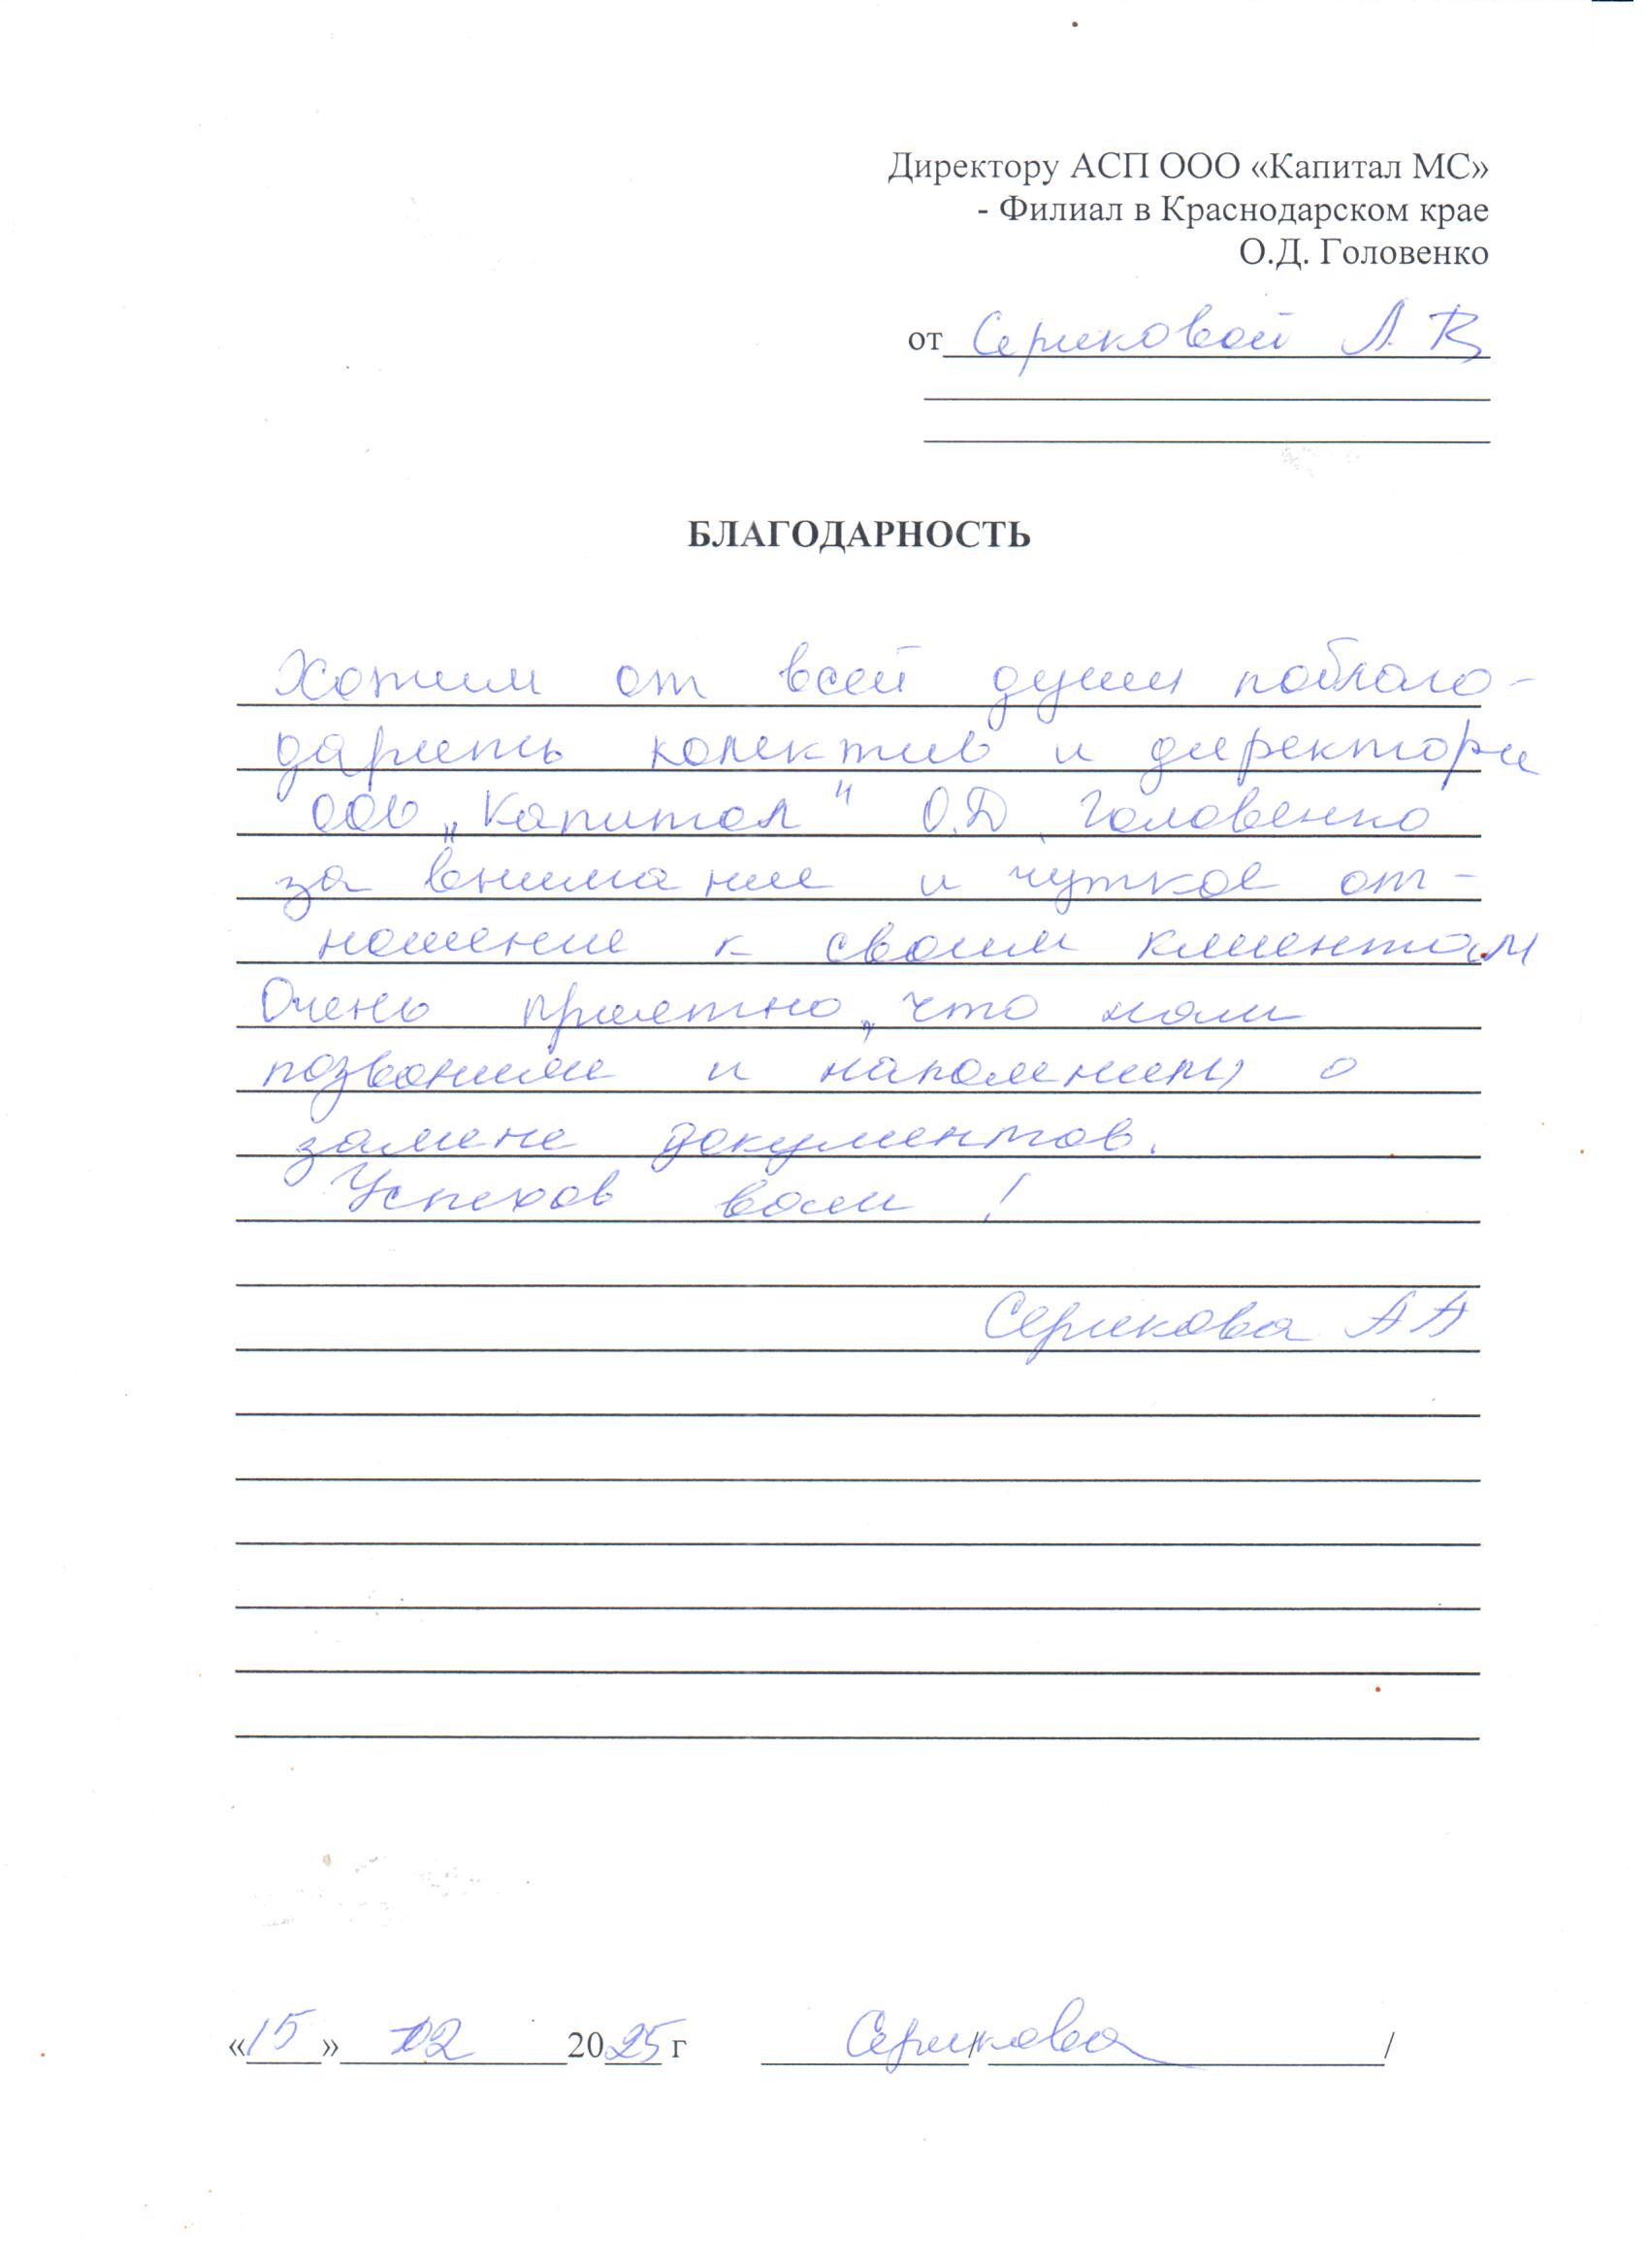 Директору АСП ООО «Капитал МС»
- Филиал в Краснодарском крае
О.Д. Головенко
от Сериковой А. В
БЛАГОДАРНОСТЬ
Хотим от всей души поблаго-
дарить колектив и директора
ООО „Капитал" О.Д. Головенко
за внимание и чуткое от-
ношение к своим клиентам
Очень приятно, что нам
позвонили и напомнили о
замене документов.
Успехов вам!
Серикова А А
«15» 02 2025 г Серикова / /